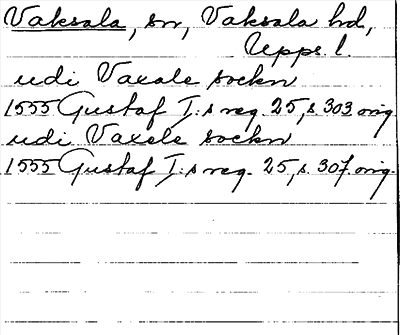 Vaksala, sn, Vaksala hd,
Upps. l.
udi Vaxale sockn
1555 Gustaf I:s reg. 25, s. 303 orig.
udi Vaxele sockn
1555 Gustaf I:s reg. 25, s. 307. orig.